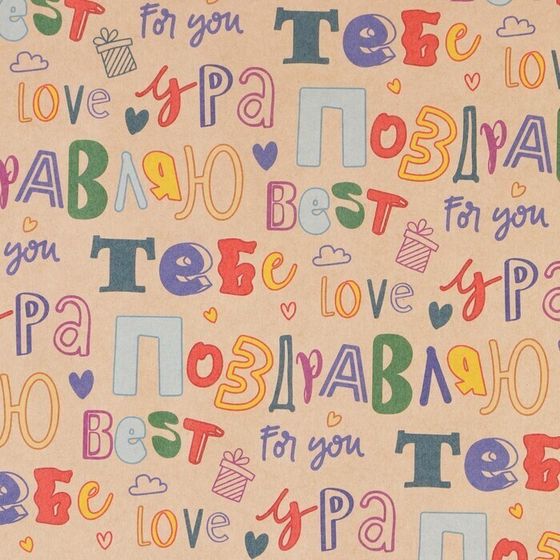 For you Тебе
Love ура ПОЗДРАВ
РАВЛЯЮ Best For you
you Тебе Love ура
ура ПОЗДРАВЛЯЮ
Ю Best For you Тебе
Тебе Love ура П